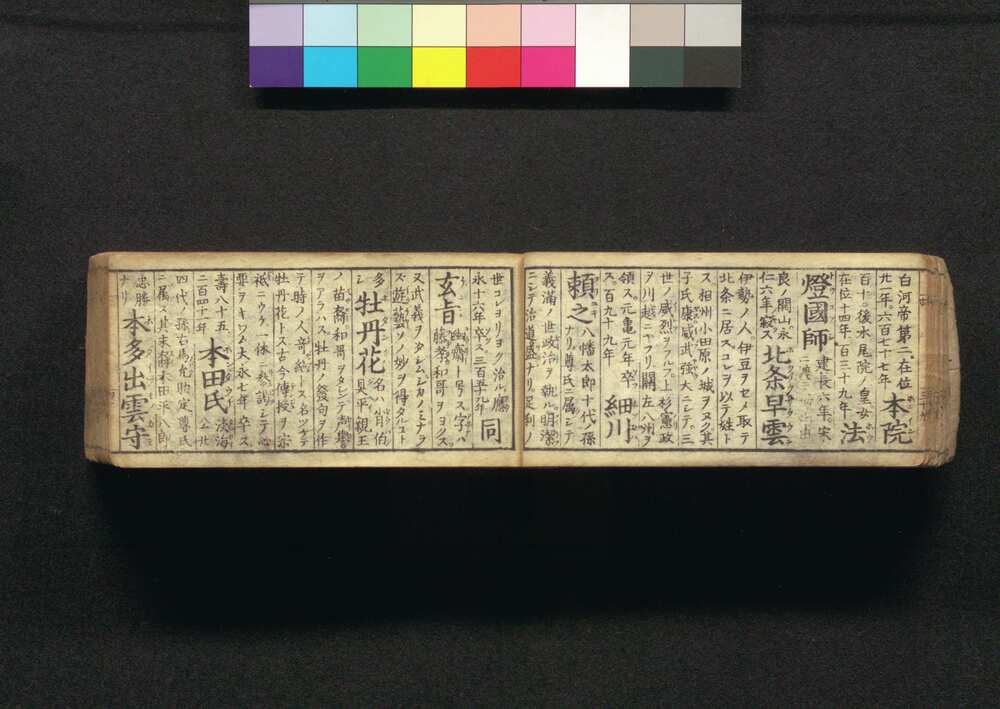 白河帝第二在位
九年六百七十七年 本院
百十三後水尾院ノ皇女
在位十四年百三十九年 法
燈國師 建長六年宋
良ノ開山永
仁六年寂ス 北条早雲
伊勢ノ人伊豆ヲセメ取テ
北条ニ居スコレヲ以テ姓ト
ス相州小田原ノ城ヲヌク其
子氏康威武強大ニシテ三
世ノ威烈ヲフフ上杉憲政
ヲ川越ニヤフリ關左八州ヲ
領ス元亀元年卒
ス百九十九年 細川
頼之 八幡太郎十代孫
ナリ尊氏ニ属シテ
義滿ノ世政治ヲ執ル明潔
ニシテ治道盛ナリ足利ノ
世コレヨリヨク治ル應
永十六年卒ス三百五十九年 同
玄旨 幽齋ト号ス字ハ
藤孝和哥ヲヨクス
又武義ヲタシムシカノミナラ
ズ遊藝ソノ妙ヲ得タルコト
多シ 牡丹花 名ハ肖伯
具平親王
ノ苗裔和哥ヲタシンテ声譽
ヲアラハス牡丹ノ發句ヲ作
テ時ノ人竒絶トス名ツケテ
牡丹花トス古今傳授ヲ宗
祇ニウク一休ニ参詣シテ心
要ヲキワム大永七年卒ス
壽八十五
二百四十一年 本田氏 淡海公北
四代ノ孫右馬允助定尊氏
ニ属ス其末裔本田平八郎
忠勝
ナリ 本多出雲守